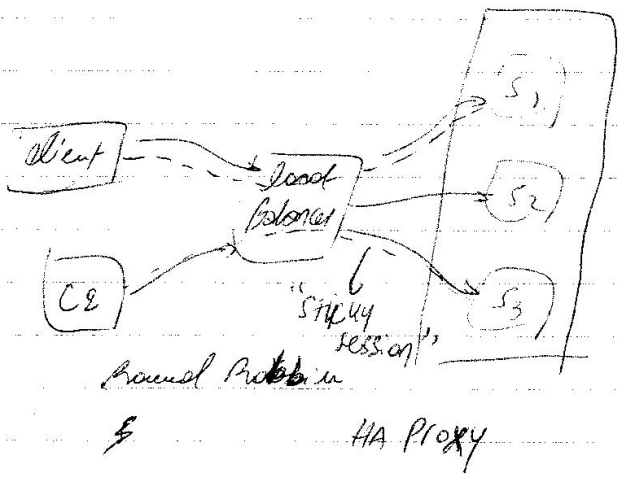 client
load
Balancer
C2
S1
S2
S3
"Sticky
session"
Round Robbin
HA Proxy